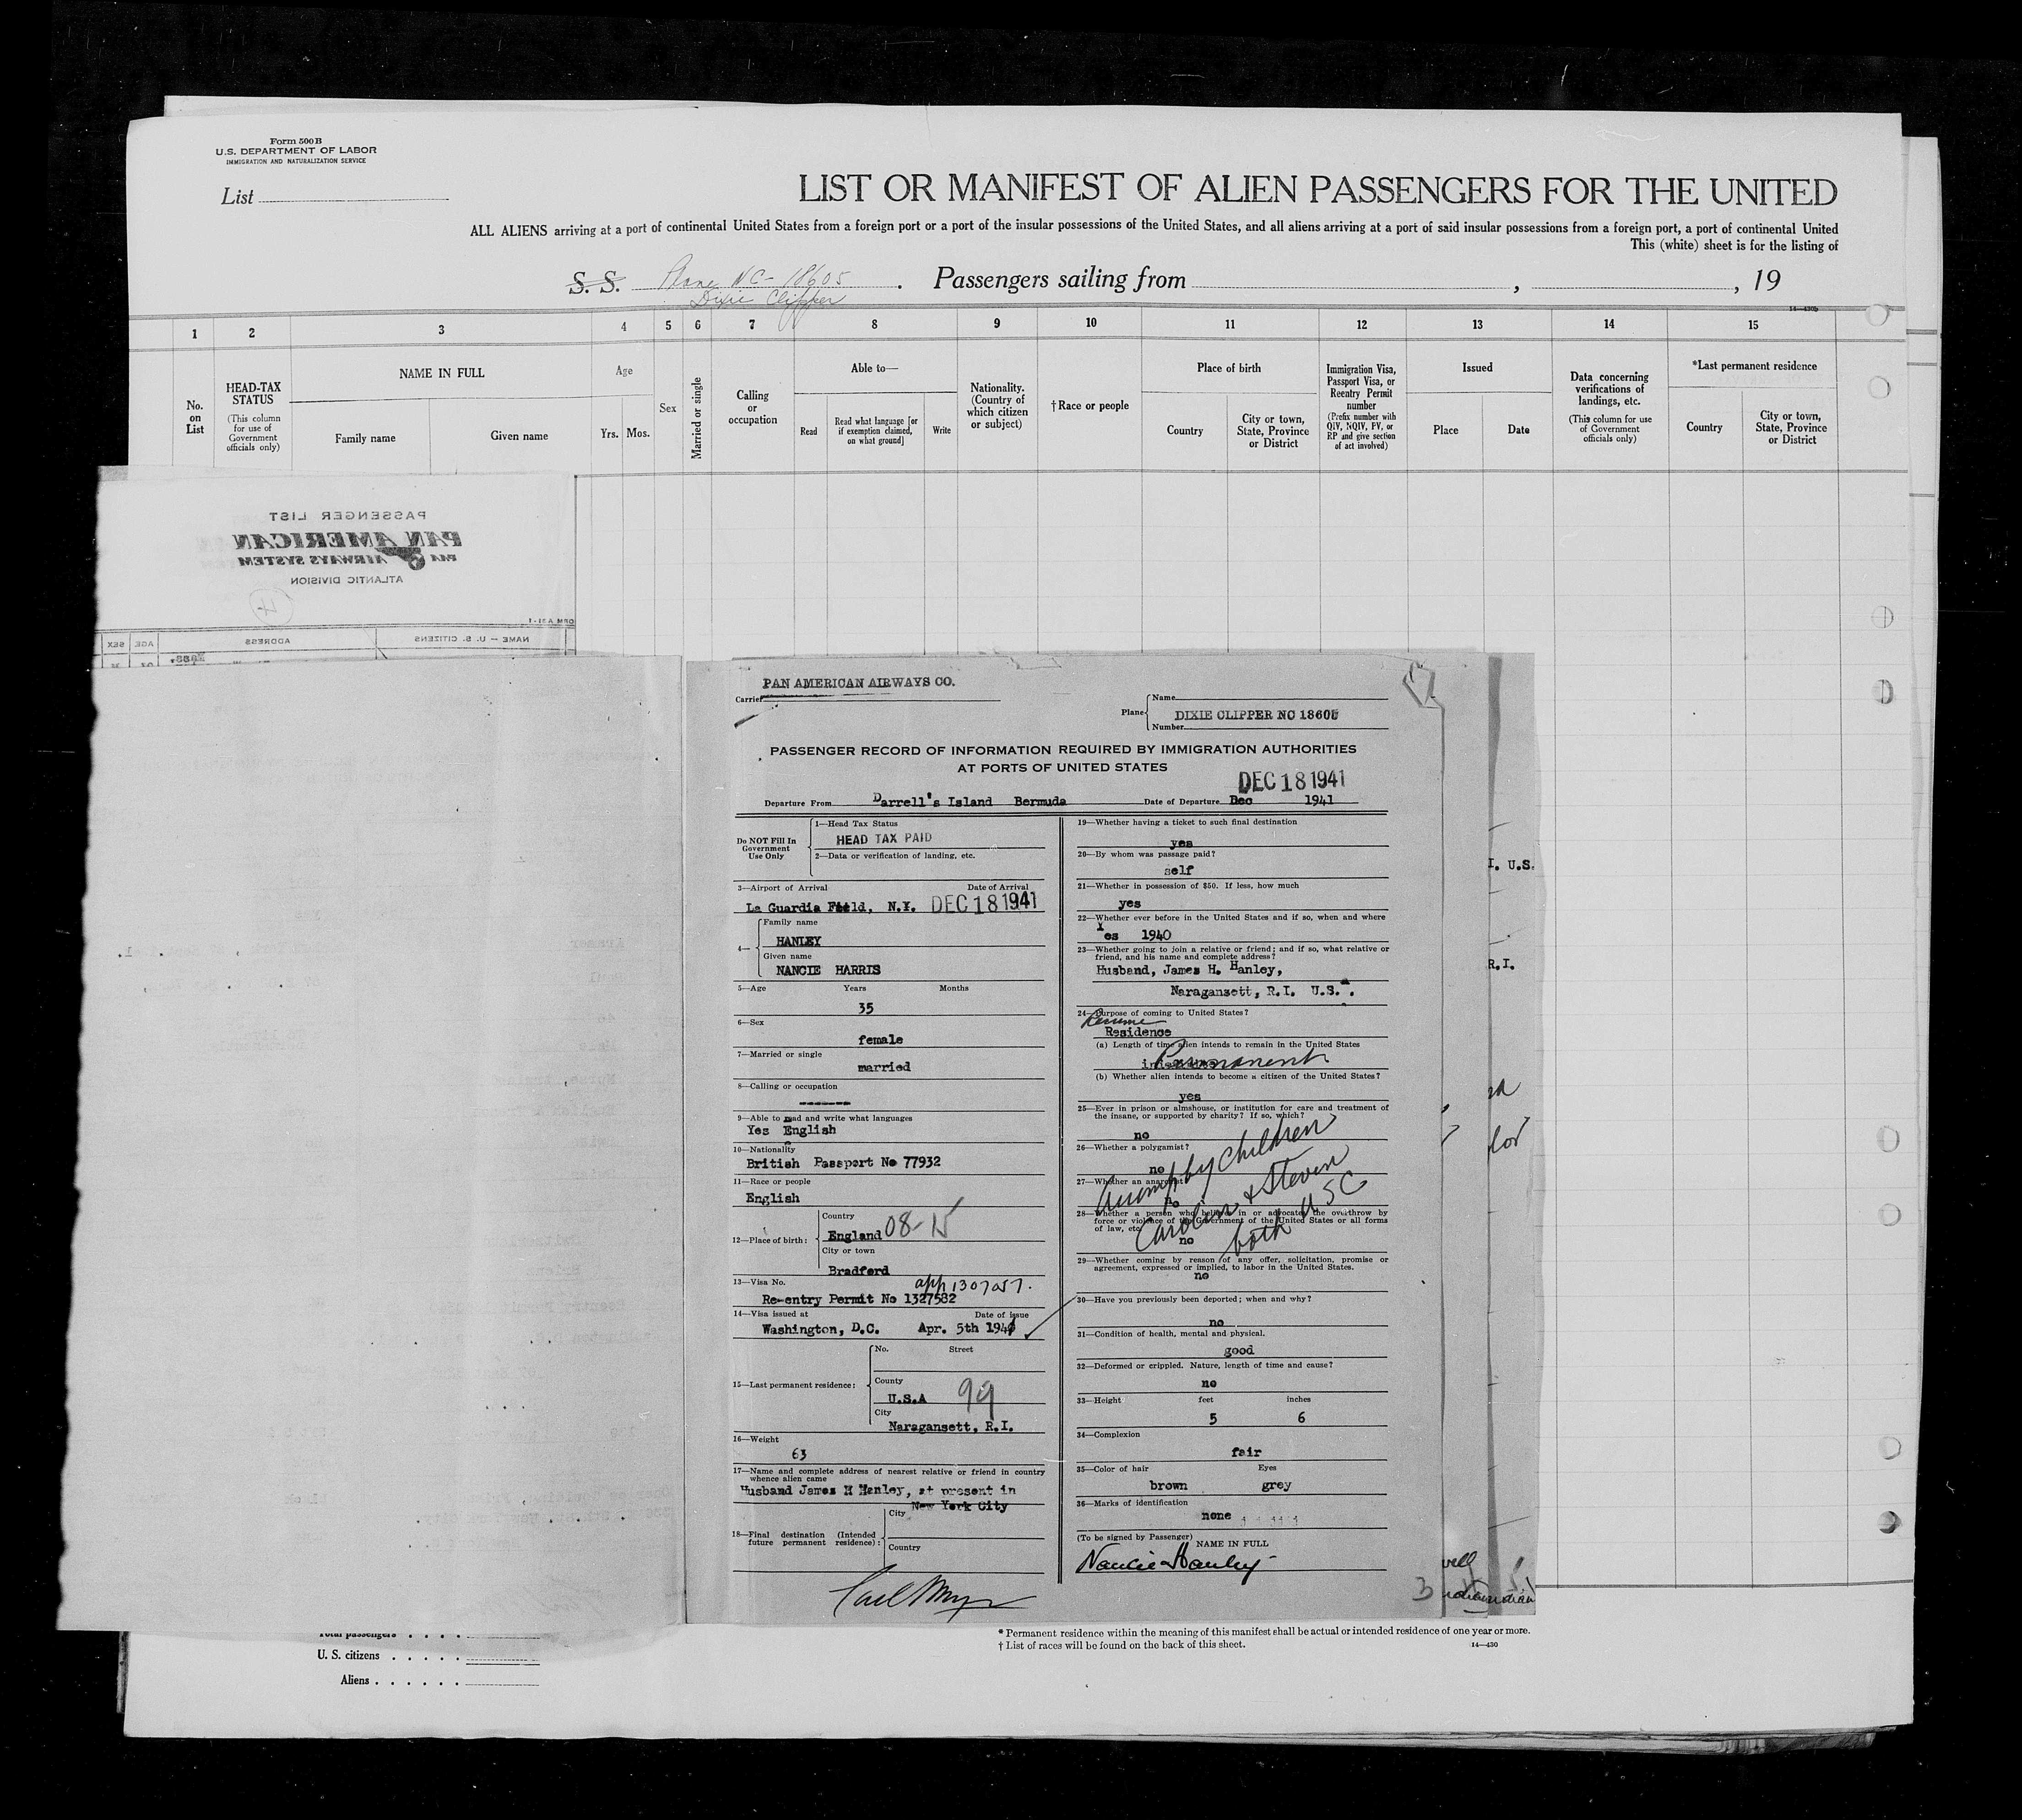 Form 500B
U.S. DEPARTMENT OF LABOR
IMMIGRATION AND NATURALIZATION SERVICE
List
LIST OR MANIFEST OF ALIEN PASSENGERS FOR THE UNITED
ALL ALIENS arriving at a port of continental United States from a foreign port or a port of the insular possessions of the United States, and all aliens arriving at a port of said insular possessions from a foreign port, a port of continental United
This (white) sheet is for the listing of
S. S. Plane NC-18605 . Passengers sailing from , , 19
Dixie Clipper
14—430b
1 2 3 4 5 6 7 8 9 10 11 12 13 14 15
No. on List
HEAD-TAX STATUS
(This column for use of Government officials only)
NAME IN FULL
Family name
Given name
Age
Yrs. Mos.
Sex
Married or single
Calling or occupation
Able to—
Read
Read what language [or if exemption claimed, on what ground]
Write
Nationality. (Country of which citizen or subject)
†Race or people
Place of birth
Country
City or town, State, Province or District
Immigration Visa, Passport Visa, or Reentry Permit number
(Prefix number with QIV, NQIV, PV, or RP and give section of act involved)
Issued
Place
Date
Data concerning verifications of landings, etc.
(This column for use of Government officials only)
*Last permanent residence
Country
City or town, State, Province or District
PASSENGER LIST
PAN AMERICAN
PAA AIRWAYS SYSTEM
ATLANTIC DIVISION
4
NAME — U. S. CITIZENS
ADDRESS
AGE
SEX
PAN AMERICAN AIRWAYS CO.
Carrier
Name
Plane
DIXIE CLIPPER NC 18605
Number
PASSENGER RECORD OF INFORMATION REQUIRED BY IMMIGRATION AUTHORITIES
AT PORTS OF UNITED STATES
DEC 18 1941
Departure From Darrell's Island Bermuda Date of Departure Dec 1941
Do NOT Fill In
Government
Use Only
1—Head Tax Status
HEAD TAX PAID
2—Data or verification of landing, etc.
3—Airport of Arrival Date of Arrival
La Guardia Field, N.Y. DEC 18 1941
4—
Family name
HANLEY
Given name
NANCIE HARRIS
5—Age Years Months
35
6—Sex
female
7—Married or single
married
8—Calling or occupation
-------
9—Able to read and write what languages
Yes English
10—Nationality
British Passport No 77932
11—Race or people
English
12—Place of birth:
Country
England 08-15
City or town
Bradford
13—Visa No. app 1307057.
Re-entry Permit No 1327582
14—Visa issued at Date of issue
Washington, D.C. Apr. 5th 194
15—Last permanent residence:
No. Street
County
U.S.A 99
City
Naragansett, R.I.
16—Weight
63
17—Name and complete address of nearest relative or friend in country
whence alien came
Husband James H Hanley, at present in
New York City
18—Final destination (Intended
future permanent residence):
City
Country
19—Whether having a ticket to such final destination
yes
20—By whom was passage paid?
self
21—Whether in possession of $50. If less, how much
yes
22—Whether ever before in the United States and if so, when and where
Yes 1940
23—Whether going to join a relative or friend; and if so, what relative or
friend, and his name and complete address?
Husband, James H. Hanley,
Naragansett, R.I. U.S.A.
24—Purpose of coming to United States?
Resume
Residence
(a) Length of time alien intends to remain in the United States
Permanent
(b) Whether alien intends to become a citizen of the United States?
yes
25—Ever in prison or almshouse, or institution for care and treatment of
the insane, or supported by charity? If so, which?
no
26—Whether a polygamist?
no
27—Whether an anarchist
no
28—Whether a person who believes in or advocates the overthrow by
force or violence of the Government of the United States or all forms
of law, etc.
no
Accomp by children
Carolin & Steven
both USC
29—Whether coming by reason of any offer, solicitation, promise or
agreement, expressed or implied, to labor in the United States.
no
30—Have you previously been deported; when and why?
no
31—Condition of health, mental and physical.
good
32—Deformed or crippled. Nature, length of time and cause?
no
33—Height feet inches
5 6
34—Complexion
fair
35—Color of hair Eyes
brown grey
36—Marks of identification
none
(To be signed by Passenger)
NAME IN FULL
Nancie Hanley
I. U.S.
R.I.
3
Total passengers
U. S. citizens
Aliens
* Permanent residence within the meaning of this manifest shall be actual or intended residence of one year or more.
† List of races will be found on the back of this sheet.
14—430